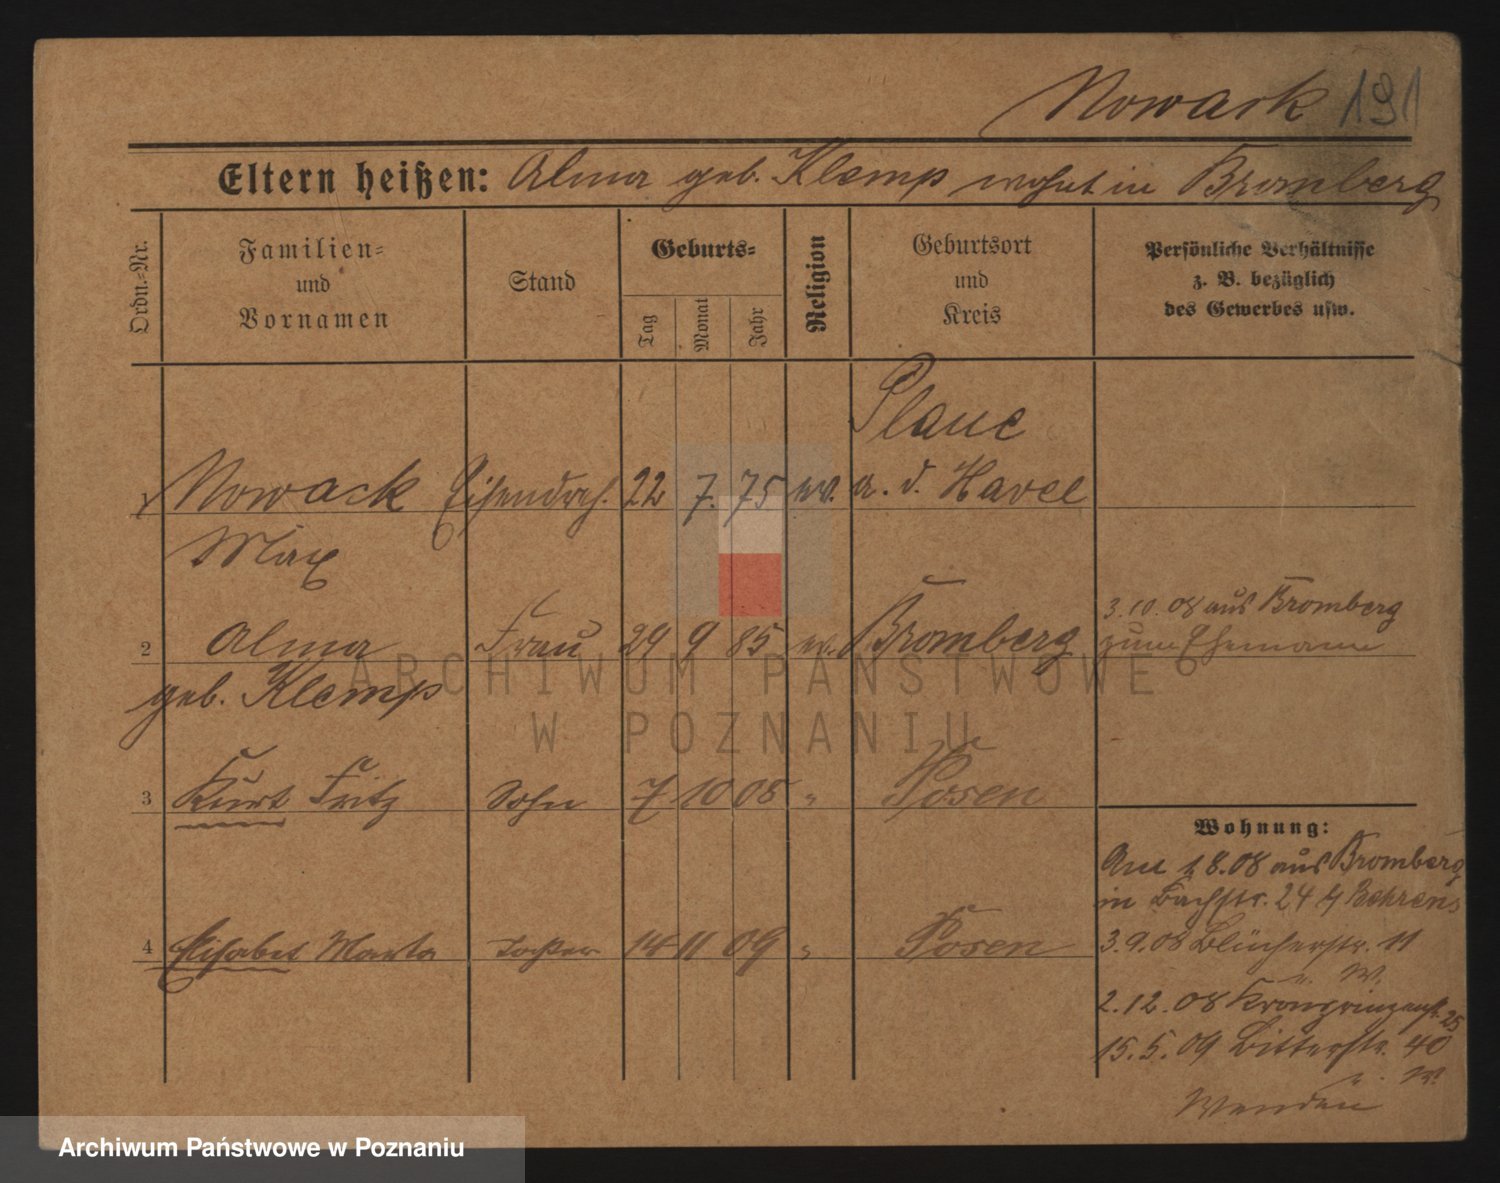 Nowack 191
Eltern heißen: Alma geb. Klemp wohnt in Bromberg
Ordn.-Nr.
Familien-
und
Vornamen
Stand
Geburts-
Tag
Monat
Jahr
Religion
Geburtsort
und
Kreis
Persönliche Verhältnisse
z. B. bezüglich
des Gewerbes usw.
Plaue
1 Nowack Eisendreh. 22 7. 75 ev. a. d. Havel
Max
3.10.08 aus Bromberg
2 Alma Frau 29 9 85 ev. Bromberg zum Ehemann
geb. Klemp
3 Kurt Fritz Sohn 7 10 08 " Posen
Wohnung:
Am 1.8.08 aus Bromberg
in Bachstr. 24 b/ Behrens
4 Elisabet Marta Tochter 14 11 09 " Posen
3.9.08 Blücherstr. 11
u. W.
2.12.08 Kronprinzenstr. 25
15.5.09 Bitterstr. 40
u. W.
ARCHIWUM PAŃSTWOWE
W POZNANIU
Archiwum Państwowe w Poznaniu